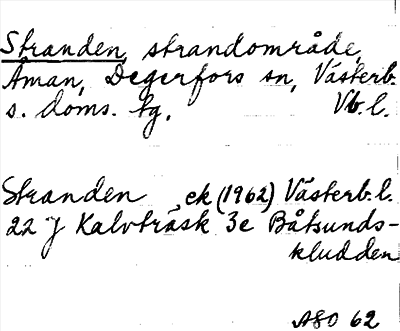 Stranden, strandområde,
Åman, Degerfors sn, Västerb.
s. doms. tg. Vb. l.
Stranden, ek (1962) Västerb. l.
22 J Kalvträsk 3e Båtsunds-
kludden
ASO 62